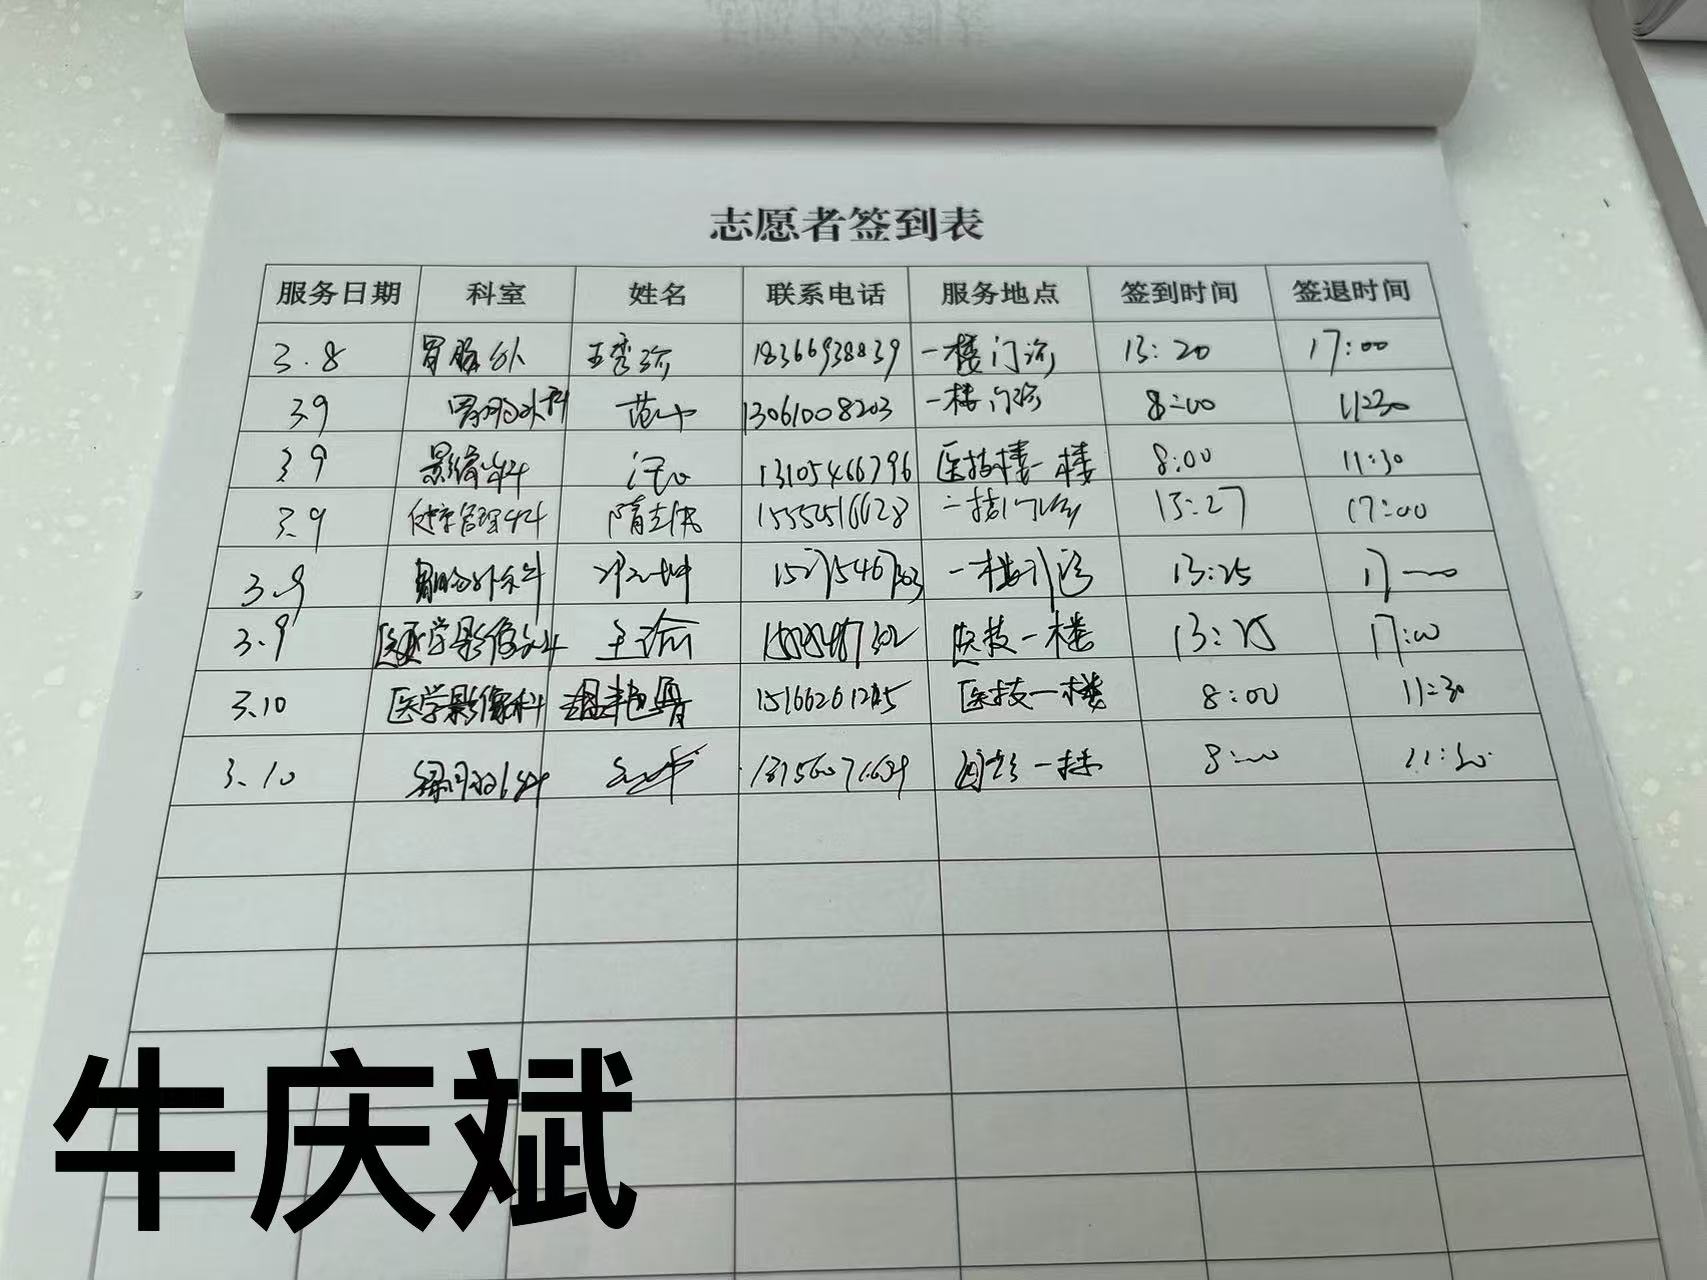 志愿者签到表
服务日期 科室 姓名 联系电话 服务地点 签到时间 签退时间
3.8 胃肠外 王秀珍 18366938839 一楼门诊 13:20 17:00
3.9 胃肠外科 13061008203 一楼门诊 8:00 11:30
3.9 影像科 13105466796 医技楼一楼 8:00 11:30
3.9 健康管理科 隋志伟 13:27 17:00
3.9 胃肠外科 一楼门诊 13:25 17
3.9 医学影像科 王瑜 医技一楼 13:25 17:00
3.10 医学影像科 15166261245 医技一楼 8:00 11:30
3.10 一楼 8:00 11:30
牛庆斌